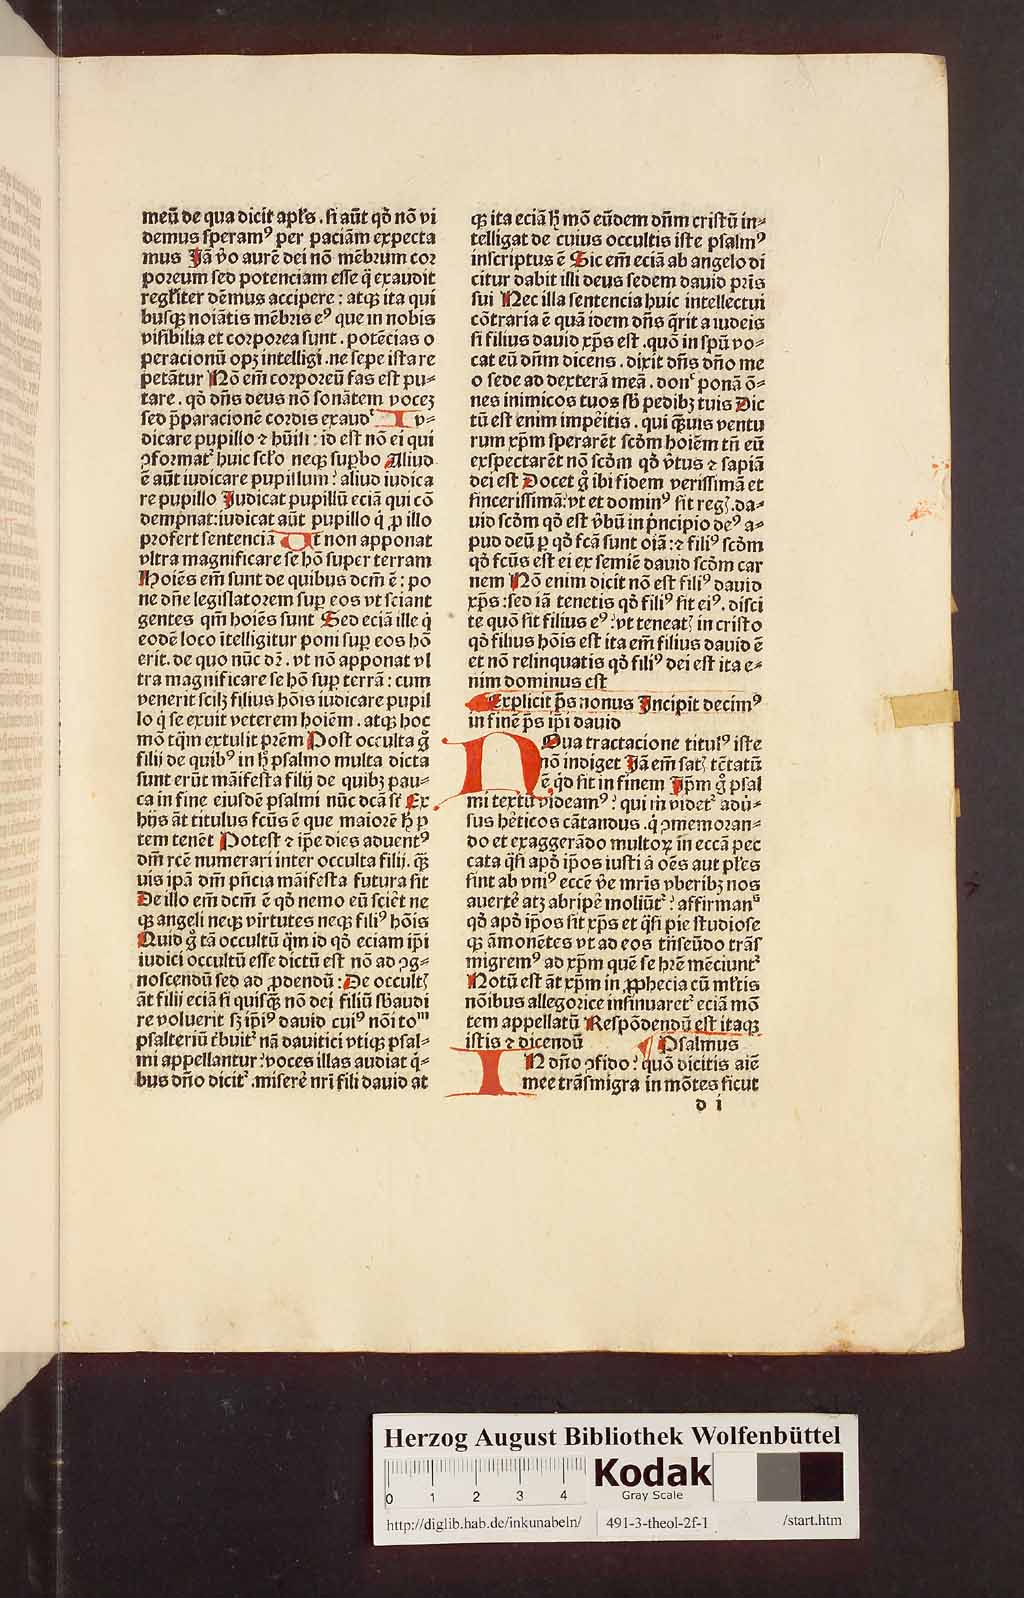 meū de qua dicit apl̄s . si aūt qd̄ nō vi
demus speramꝰ per paciām expecta
mus Jā v̄o aurē dei nō mēbrum cor
poreum sed potenciam esse q̄ exaudit
regl̄iter dēmus accipere : atqꝫ ita qui
busqꝫ noīātis mēbris eꝰ que in nobis
visibilia et corporea sunt . potēcias o
peracionū opꝫ intelligi . ne sepe ista re
petātur Nō em̄ corporeū fas est pu⸗
tare . qd̄ dn̄s deus nō sonātem voceꝫ
sed p̄paracionē cordis exaudᶜ Iv⸗
dicare pupillo ⁊ hūili : id est nō ei qui
ꝯformatᷣ huic scl̄o neqꝫ suꝑbo Aliud
ē aūt iudicare pupillum : aliud iudica
re pupillo Judicat pupillū eciā qui cō
dempnat : iudicat aūt pupillo q̇ ꝓ illo
profert sentenciā Ut non apponat
vltra magnificare se hō super terram
Hoīes em̄ sunt de quibus dcm̄ ē : po
ne dn̄e legislatorem suꝑ eos vt sciant
gentes qm̄ hoīes sunt Sed eciā ille q̇
eodē loco ītelligitur poni suꝑ eos hō
erit . de quo nūc dꝛ̄ . vt nō apponat vl
tra magnificare se hō suꝑ terrā : cum
venerit scilꝫ filius hōis iudicare pupil
lo q̇ se exuit veterem hoīem . atqꝫ hoc
mō tq̄m extulit pr̄em Post occulta g̊
filij de quibꝰ in hꝰ psalmo multa dicta
sunt erūt māifesta filij de quibꝫ pau⸗
ca in fine eiusdē psalmi nūc dcā sr̄ Ex
hijs āt titulus fcūs ē que maiorē hꝰ ꝑ
tem tenēt Potest ⁊ ip̄e dies aduentꝰ
dm̄ rcē numerari inter occulta filij . q̄ꝫ
uis ipā dm̄ pn̄cia māifesta futura sit
De illo em̄ dcm̄ ē qd̄ nemo eū sciēt ne
qꝫ angeli neqꝫ virtutes neqꝫ filiꝰ hōis
Quid g̊ tā occultū q̄m id qd̄ eciam ip̄i
iudici occultū esse dictū est nō ad ꝯg⸗
noscendū sed ad ꝓdendū : De occultꝭ
āt filij eciā si quisqꝫ nō dei filiū sb̄audi
re voluerit sꝫ ip̄iꝰ dauid cuiꝰ nōi toᵐ
psalteriū tb̄uitᷣ nā dauitici vtiqꝫ psal⸗
mi appellantur : voces illas audiat q̇⸗
bus dn̄o dicitᷣ . miserē nr̄i fili dauid at
qꝫ ita eciā hꝰ mō eūdem dn̄m cristū in⸗
telligat de cuius occultis iste psalmꝰ
inscriptus ē Sic em̄ eciā ab angelo di
citur dabit illi deus sedem dauid pr̄is
sui Nec illa sentencia huic intellectui
cōtraria ē quā idem dn̄s q̄rit a iudeis
si filius dauid xp̄s est . quō in spū vo⸗
cat eū dn̄m dicens . dixit dn̄s dn̄o me
o sede ad dexterā meā . donᶜ ponā ō⸗
nes inimicos tuos sb̄ pedibꝫ tuis Dic
tū est enim imp̄itis . qui q̄ꝫuis ventu
rum xp̄m sperarēt scd̄m hoīem tn̄ eū
exspectarēt nō scd̄m qd̄ v̄tus ⁊ sapiā
dei est Docet g̊ ibi fidem verissimā et
sincerissimā : vt et dominꝰ sit regꝭ da⸗
uid scd̄m qd̄ est v̄bū in p̄ncipio deꝰ a⸗
pud deū ꝑ qd̄ fcā sunt oīā : ⁊ filiꝰ scd̄m
qd̄ fcūs est ei ex semīe dauid scd̄m car
nem Nō enim dicit nō est filiꝰ dauid
xp̄s : sed iā tenetis qd̄ filiꝰ sit eiꝰ . disci
te quō sit filius eꝰ : vt teneatꝭ in cristo
qd̄ filius hōis est ita em̄ filius dauid ē
et nō relinquatis qd̄ filiꝰ dei est ita e⸗
nim dominus est
Explicit p̄s nonus Incipit decimꝰ
in finē p̄s ip̄i dauid
NOua tractacione titulꝰ iste
nō indiget Jā em̄ satꝭ tētatū
ē , qd̄ sit in finem Jp̄m g̊ psal
mi textū videamꝰ : qui m̄ videtᷣ aduᷣ⸗
sus hētic̄os cātandus . q̇ ꝯmemoran⸗
do et exaggerādo multoꝝ in eccā pec
cata q̄si apd̄ ip̄os iusti ā oēs aut pl̄es
sint ab vniꝰ eccē v̄e mr̄is vberibꝫ nos
auertē atꝫ abripē moliūtᷣ : affirmanᵍ
qd̄ apd̄ ip̄os sit xp̄s et q̄si pie studiose
qꝫ āmonētes vt ad eos tn̄seūdo trāſ
migremꝰ ad xp̄m quē se hr̄e mēciuntᷣ
Notū est āt xp̄m in ꝓphecia cū ml̄tis
nōibus allegorice insinuaretᷣ eciā mō
tem appellatū Respōdendū est itaqꝫ
istis ⁊ dicendū ¶ Psalmus
IN dn̄o ꝯfido : quō dicitis aīē
mee trāsmigra in mōtes sicut
d i
Herzog August Bibliothek Wolfenbüttel
0 1 2 3 4
Kodak
Gray Scale
http://diglib.hab.de/inkunabeln/ 491-3-theol-2f-1 /start.htm